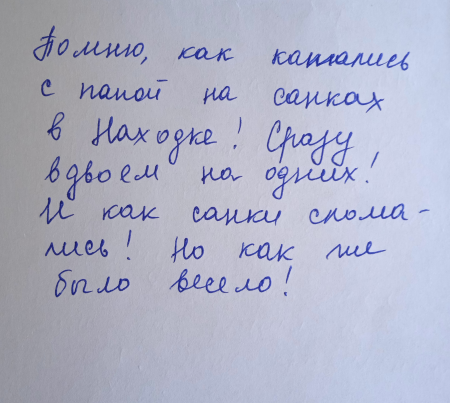 Помню, как катались
с папой на санках
в Находке! Сразу
вдвоем на одних!
И как санки слома-
лись! Но как же
было весело!